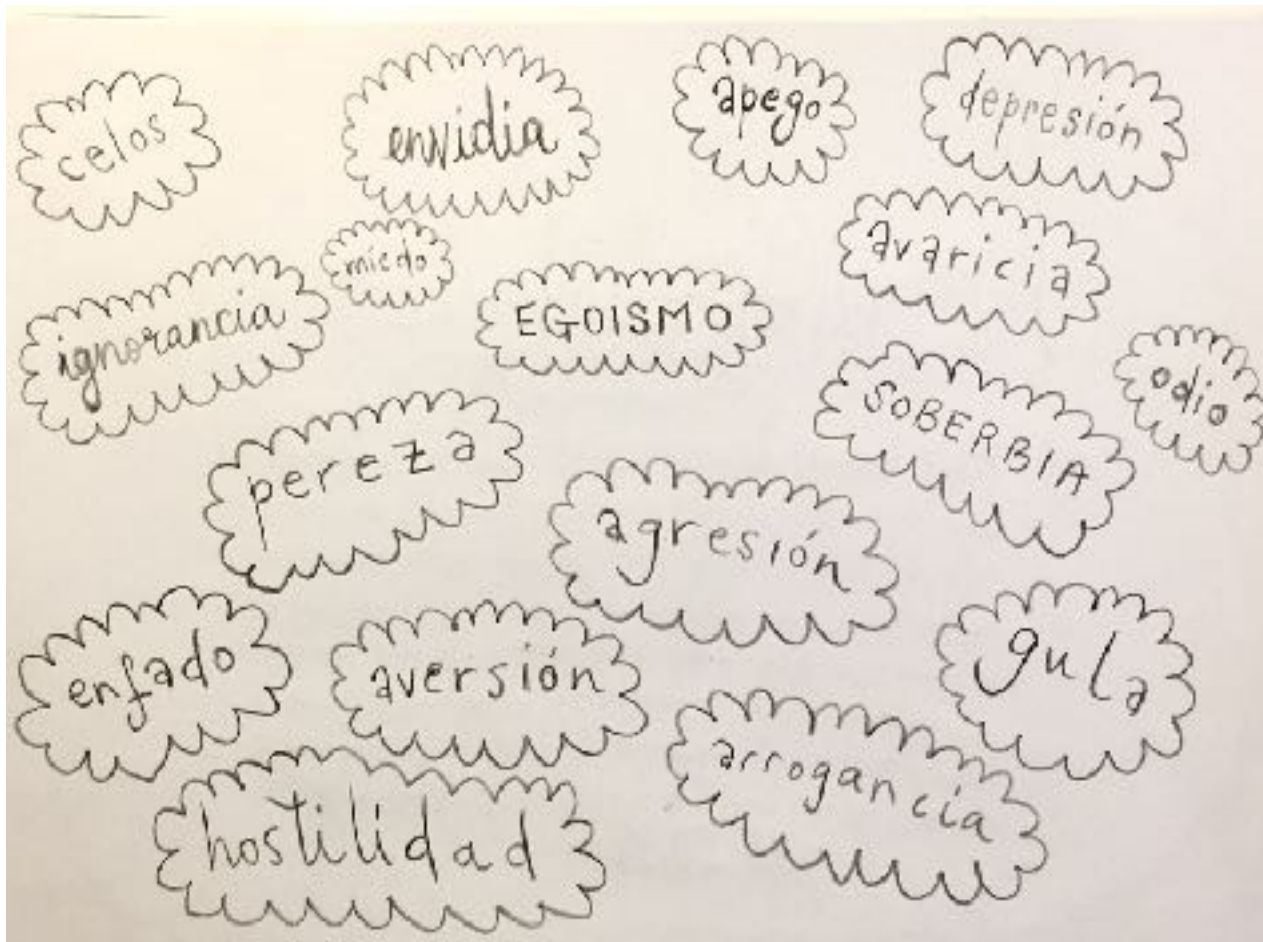 celos
envidia
apego
depresión
miedo
avaricia
ignorancia
EGOISMO
odio
SOBERBIA
pereza
agresión
enfado
aversión
gula
arrogancia
hostilidad